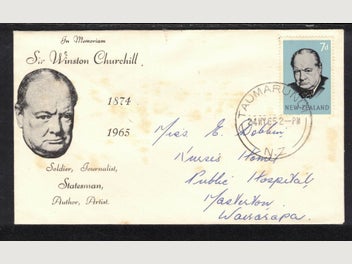 In Memoriam
Sir Winston Churchill
1874
1965
Soldier, Journalist,
Statesman,
Author, Artist.
7d
NEW ZEALAND
TAUMARUNUI
24MY65 2-PM
N.Z.
Miss E. Dobbin,
Nurses Home,
Public Hospital,
Masterton
Wairarapa.